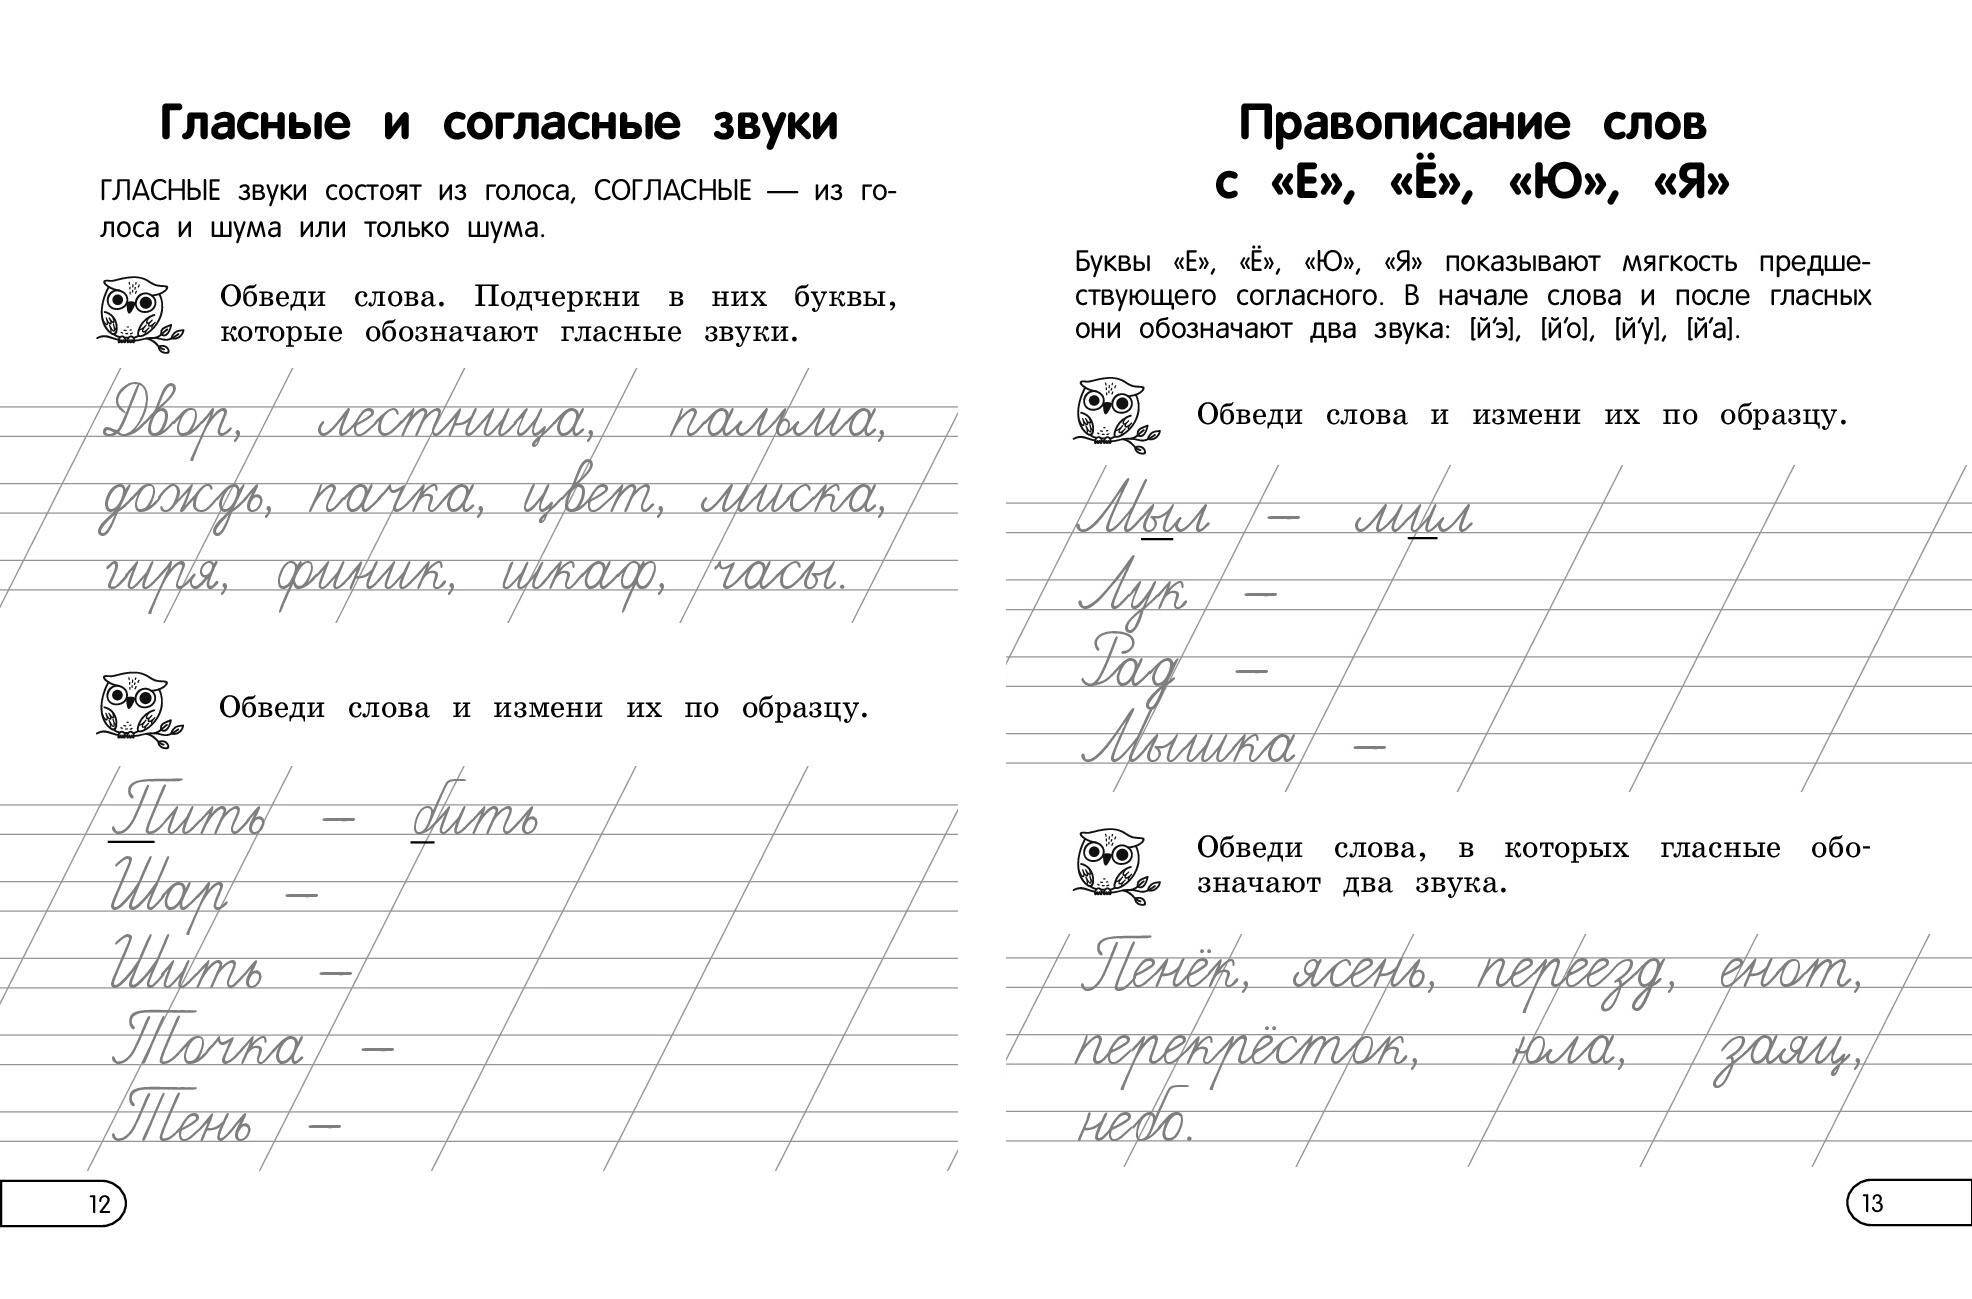 Гласные и согласные звуки
ГЛАСНЫЕ звуки состоят из голоса, СОГЛАСНЫЕ — из го-
лоса и шума или только шума.
Обведи слова. Подчеркни в них буквы,
которые обозначают гласные звуки.
Двор, лестница, пальма,
дождь, пачка, цвет, миска,
гиря, финик, шкаф, часы.
Обведи слова и измени их по образцу.
Пить – бить
Шар –
Шить –
Точка –
Тень –
12
Правописание слов
с «Е», «Ё», «Ю», «Я»
Буквы «Е», «Ё», «Ю», «Я» показывают мягкость предше-
ствующего согласного. В начале слова и после гласных
они обозначают два звука: [й’э], [й’о], [й’у], [й’а].
Обведи слова и измени их по образцу.
Мыл – мил
Лук –
Рад –
Мышка –
Обведи слова, в которых гласные обо-
значают два звука.
Пенёк, ясень, переезд, енот,
перекрёсток, юла, заяц,
небо.
13